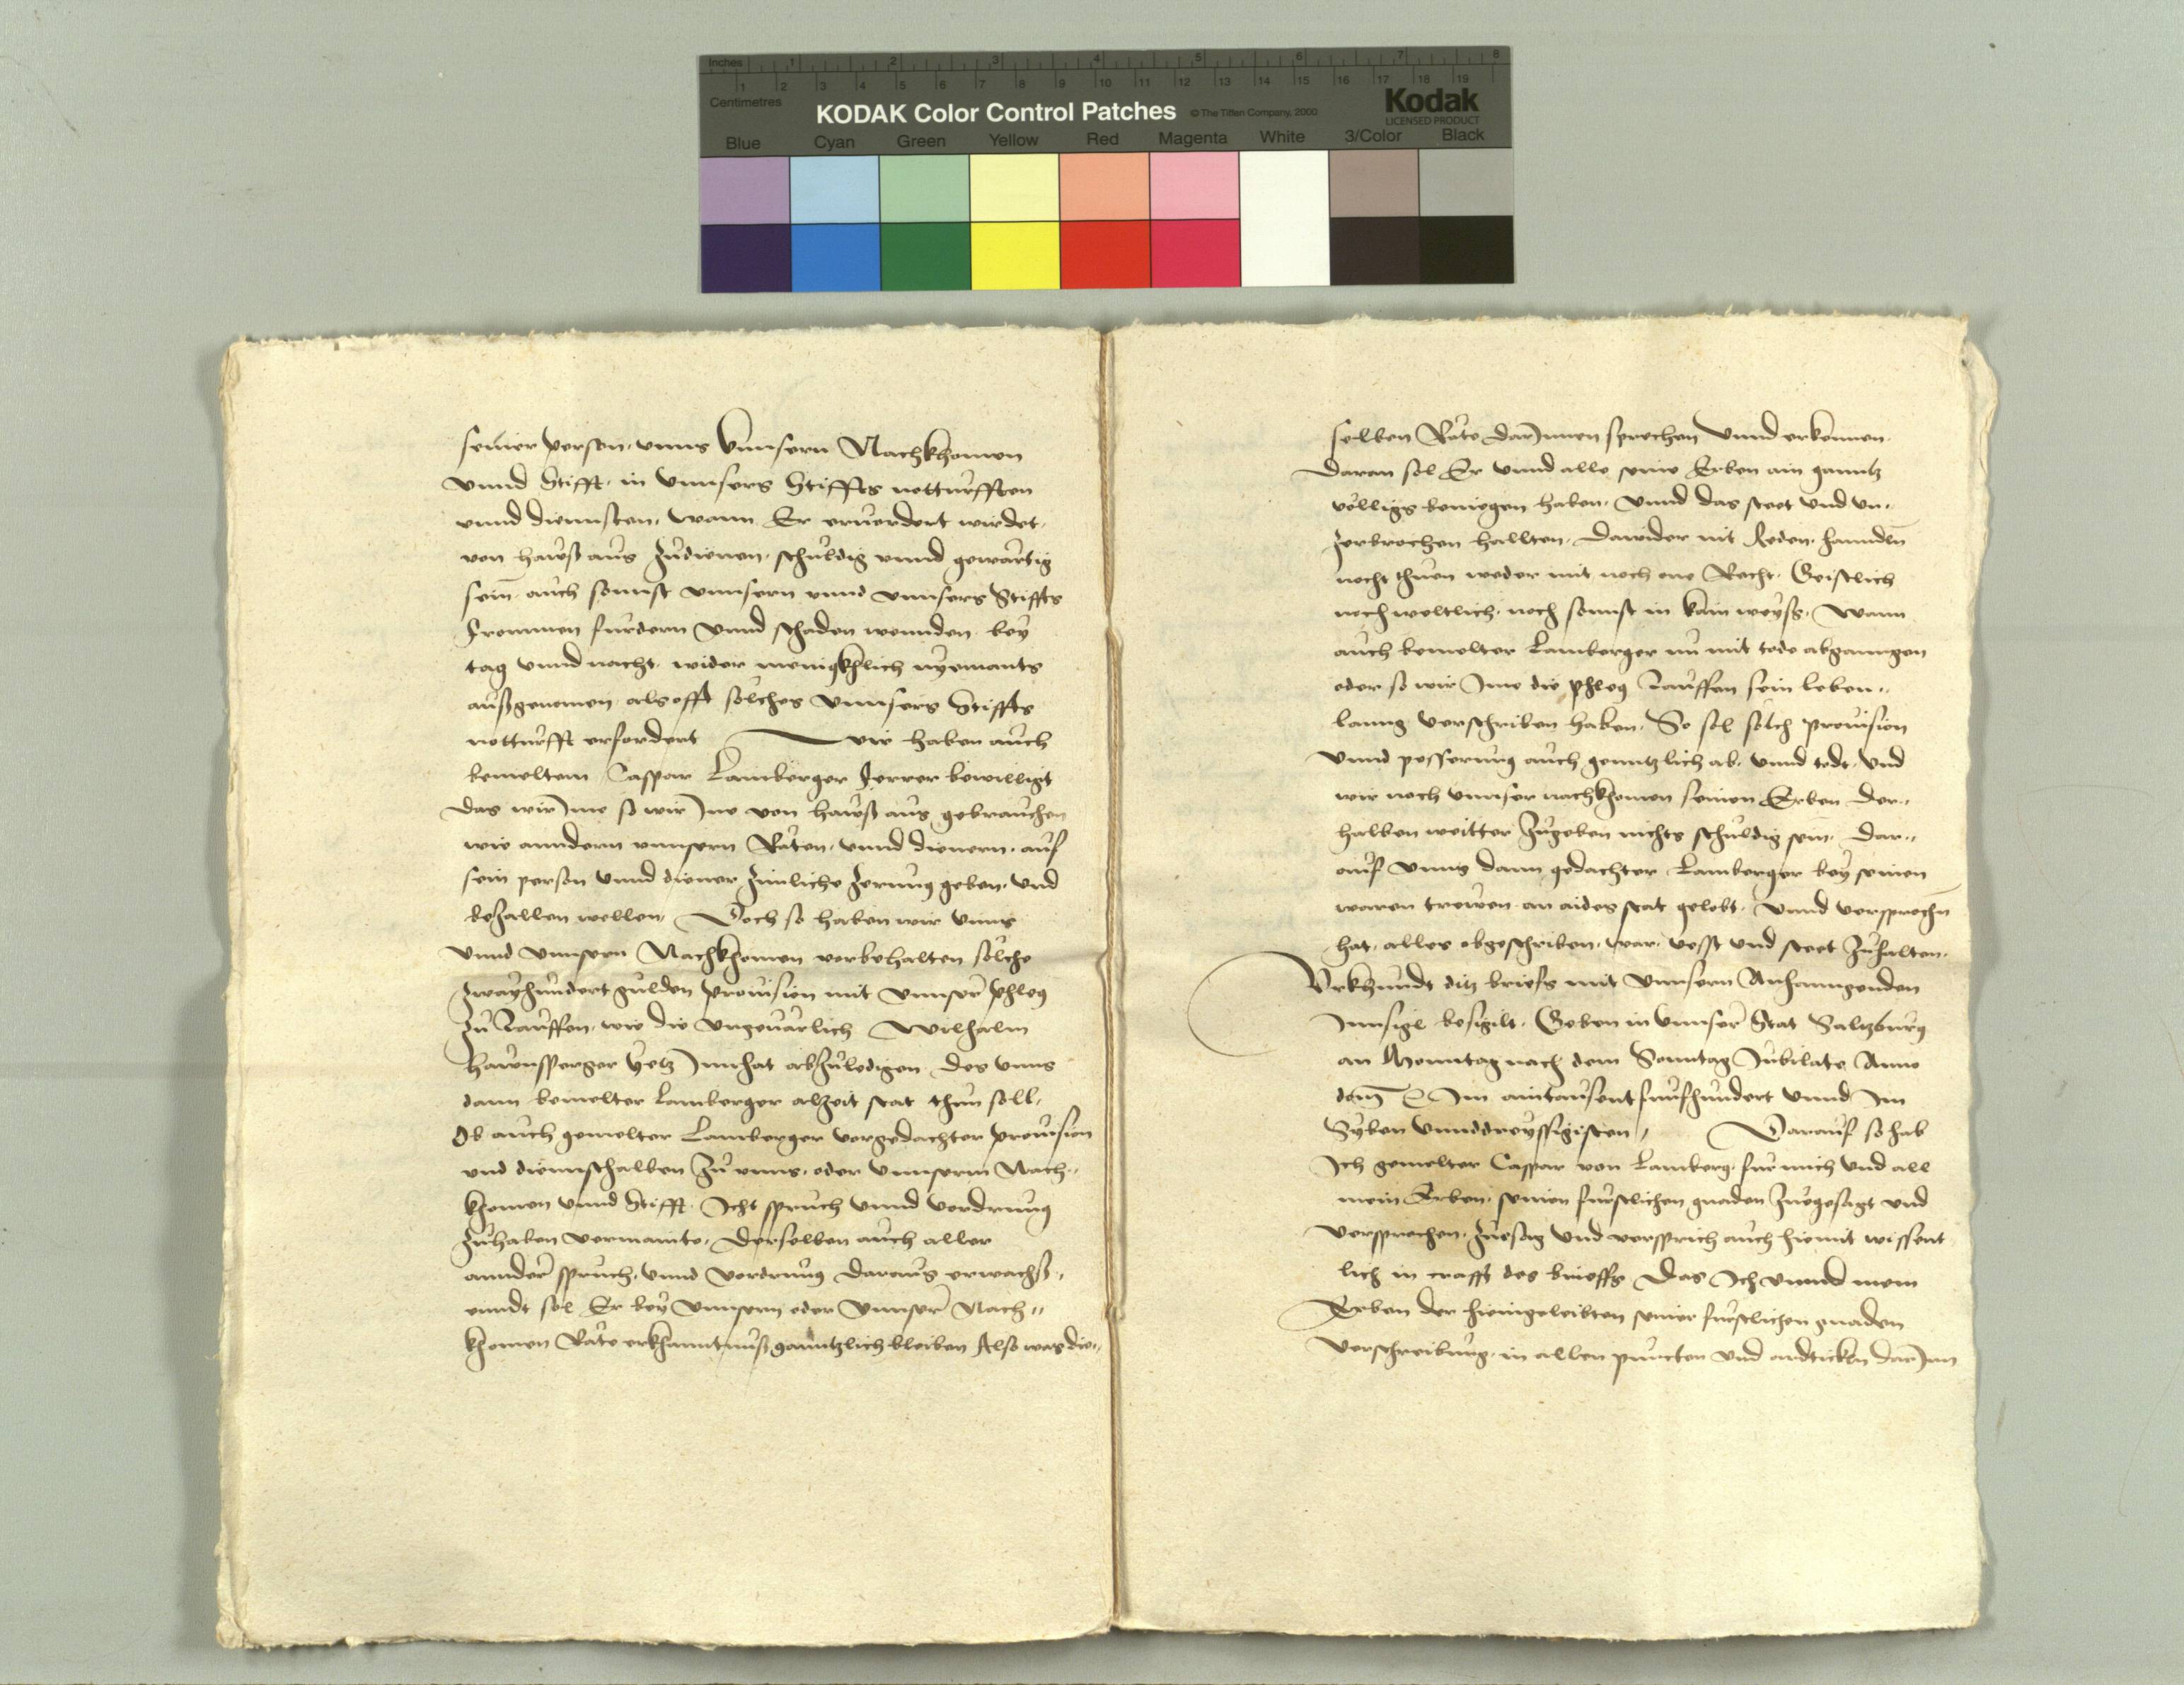 Inches 1 2 3 4 5 6 7 8
1 2 3 4 5 6 7 8 9 10 11 12 13 14 15 16 17 18 19
Centimetres
KODAK Color Control Patches © The Tiffen Company, 2000 Kodak
LICENSED PRODUCT
Blue Cyan Green Yellow Red Magenta White 3/Color Black
seiner person, vnns vnnsern Nachkhomen
vnnd Stifft, in vnnsers Stiffts notturfften
vnnd diennsten, wann Er eruordert wirdet,
von hawß aus zudienen, schuldig vnnd gewartig
sein, auch sonnst vnnsern vnnd vnnsers Stiffts
Frommen furdern vnnd schaden wennden, bey
tag vnnd nacht, wider menigkhlich nyemants
außgenomen, als offt solhes vnnsers Stiffts
notturfft erfordert Wir haben auch
bemeltem Caspar Lamberger ferrer bewilligt
das wir Ime so wir Ine von hawß aus gebrauchen
wie anndern vnnsern Räten, vnnd dienern, auf
sein person vnnd diener zimliche zerung geben, vnd
bezallen wellen, Doch so haben wir vnns
vnnd vnnsern Nachkhomen vorbehalten solche
zwayhundert gulden prouision mit vnnser phleg
zu Lauffen, wie die vngeuärlich Wilhalm
Hawnsperger yetz Innhat abzuledigen, des vnns
dann bemelter Lamberger alzeit stat thun soll,
Ob auch gemelter Lamberger vorgedachter prouision
vnd diennsthalben zu vnns, oder vnnserm Nach„
khomen vnnd Stifft, Icht spruch vnnd vordrung
zuhaben vermainte, Derselben auch aller
annder spruch, vnnd vordrung daraus erwachß„
enndt sol Er bey vnnsern oder vnnser Nach„
khomen Räte erkhanntnuß ganntzlich bleiben Also was die„
selben Räte darInnen sprechen vnnd erkennen,
daran sol Er vnnd alle seine Erben ain ganntz
völligs beniegen haben, vnnd das steet vnd vn„
zerbrochen hallten, dawider nit Reden, hanndln
nocht thuen weder mit noch one Recht, Geistlich
noch weltlich, noch sonnst in kain weyß, Wann
auch bemelter Lamberger nu mit tode abganngen
oder so wir Ime die phleg Lauffen sein leben„
lanng verschriben haben, So sol solch prouision
vnnd pesserung auch genntzlich ab, vnnd todt, vnd
wir noch vnnser nachkhomen seinen Erben der„
halben weitter zugeben nichts schuldig sein, Dar„
auf vnns dann gedachter Lamberger bey seinen
waren trewen an aides stat gelobt, vnnd versprochn
hat, alles obgeschriben, war, vesst vnd steet zuhalten,
Vrkhundt ditz briefs mit vnnserm Anhanngenden
Innsigl besigilt, Geben in vnnser Stat Saltzburg
an Monntag nach dem Sonntag Jubilate Anno
dom̄ Im aintausent funfhundert vnnd Im
Syben vnnddreyssigisten, Darauf so hab
Ich gemelter Caspar von Lamberg, fur mich vnd all
mein Erben, seinen fürstlichen gnaden zuegesagt vnd
versprochen, zuesag vnd versprich auch hiemit wissent
lich in crafft des brieffs Das Ich vnnd mein
Erben der hieingeleibten seiner fürstlichen gnaden
verschreibung, in allen puncten vnd artickln darInn